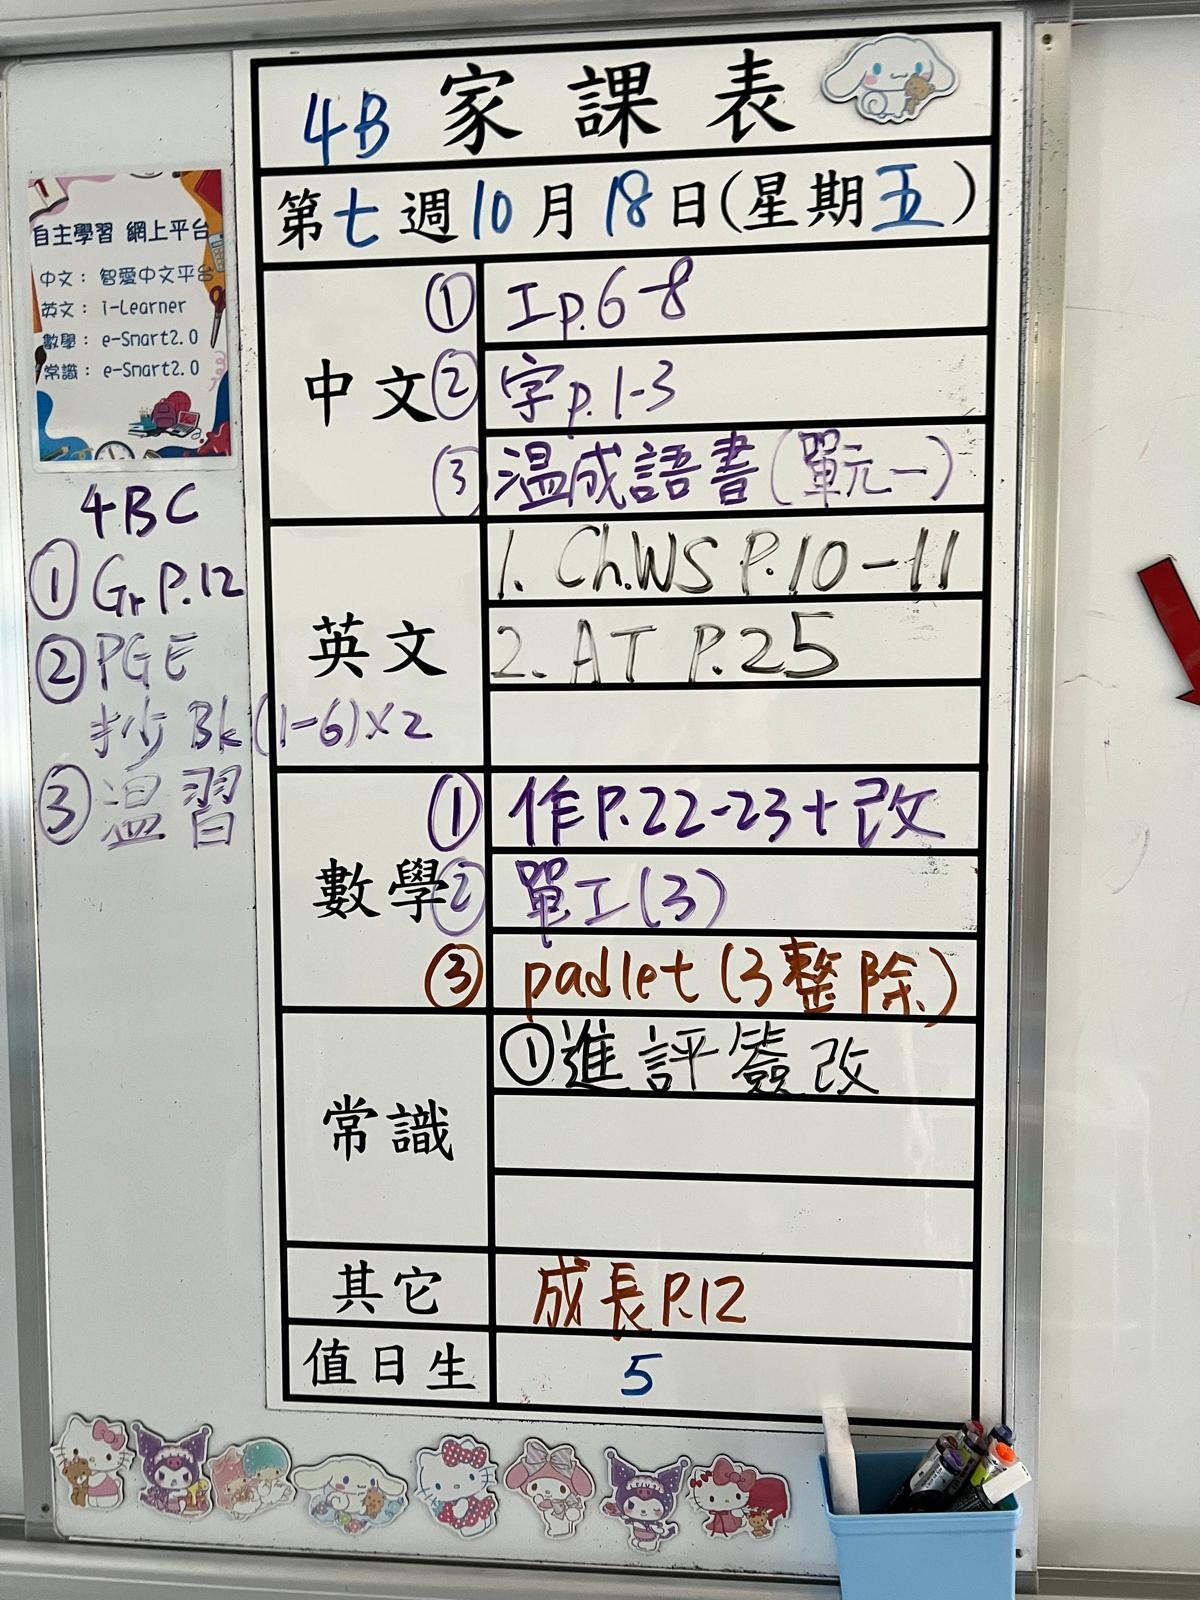 4B 家課表
第七週10月18日(星期五)
中文
① 工p.6-8
② 字p.1-3
③ 温成語書(單元一)
英文
1. Ch.WS P.10-11
2. AT P.25
數學
① 作P.22-23+改
② 單工(3)
③ padlet(3整除)
常識
①進評簽改
其它
成長P.12
值日生
5
自主學習 網上平台
中文： 智愛中文平台
英文： i-Learner
數學： e-Smart2.0
常識： e-Smart2.0
4BC
① Gr P.12
② PGE
抄 Bk(1-6)×2
③ 温習